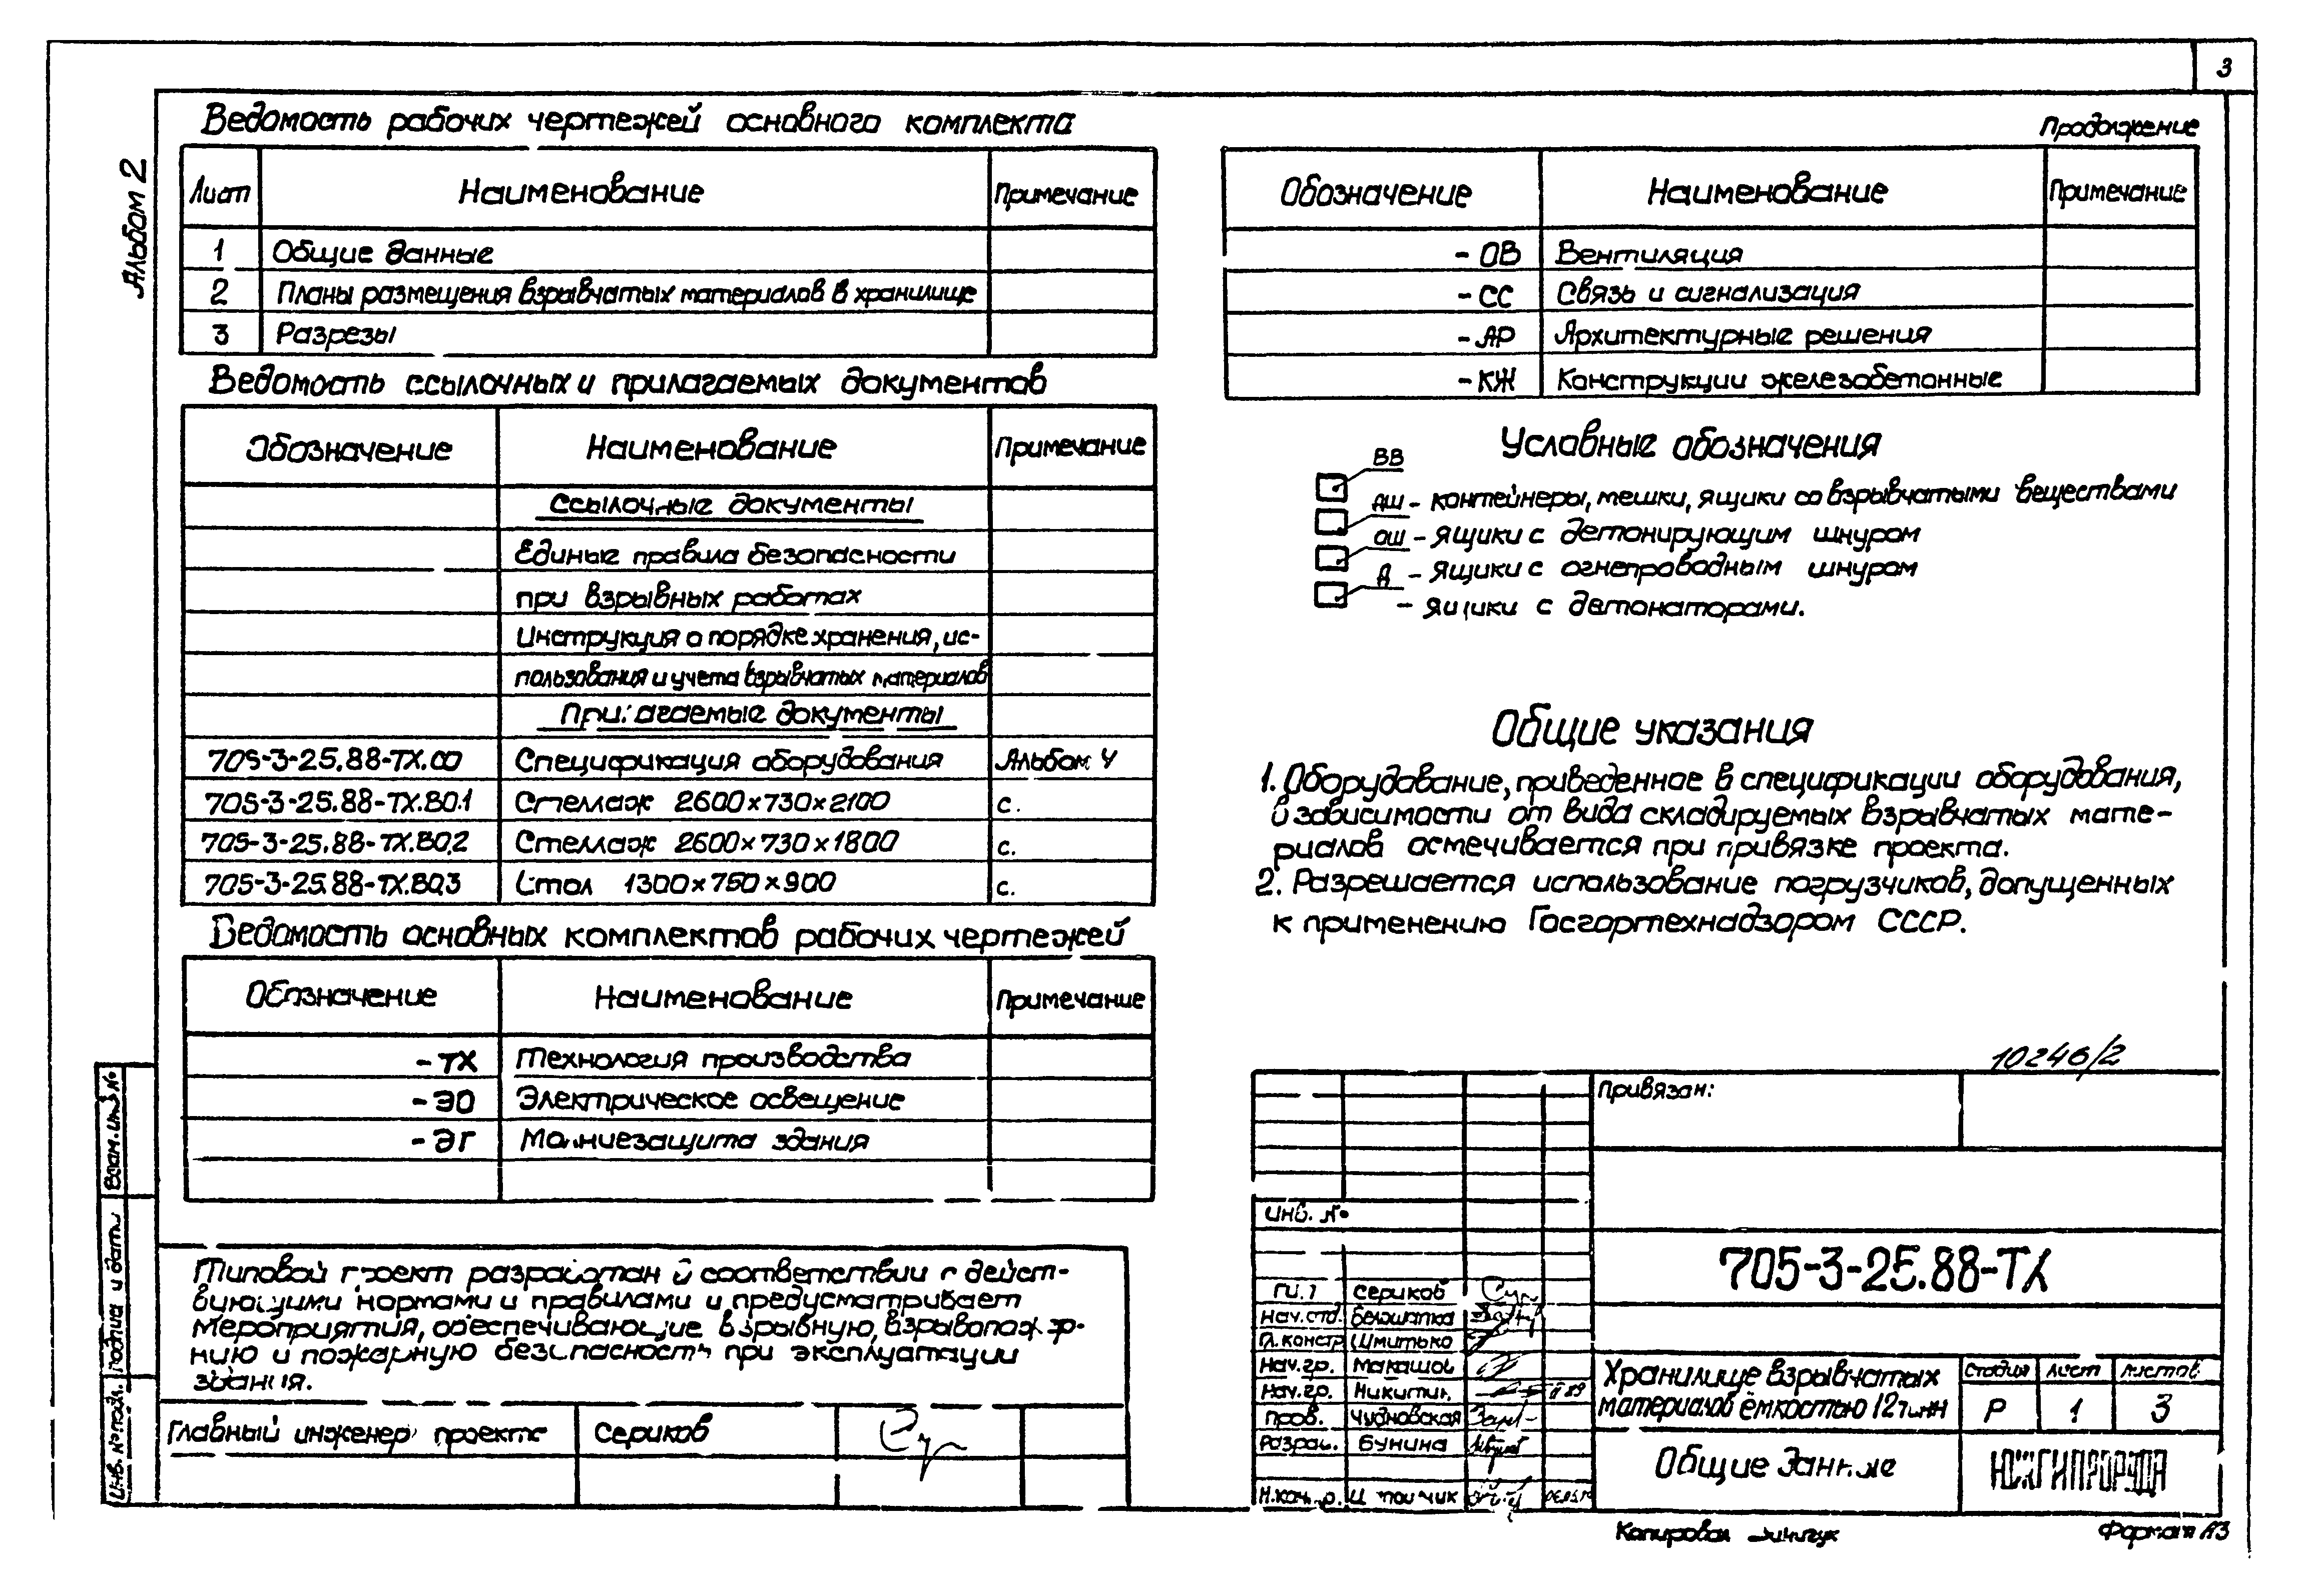 3
Альбом 2
Ведомость рабочих чертежей основного комплекта
Лист Наименование Примечание
1 Общие данные
2 Планы размещения взрывчатых материалов в хранилище
3 Разрезы
Ведомость ссылочных и прилагаемых документов
Обозначение Наименование Примечание
Ссылочные документы
Единые правила безопасности
при взрывных работах
Инструкция о порядке хранения, ис-
пользования и учета взрывчатых материалов
Прилагаемые документы
705-3-25.88-ТХ.СО Спецификация оборудования Альбом 4
705-3-25.88-ТХ.ВО.1 Стеллаж 2600×730×2100 с.
705-3-25.88-ТХ.ВО.2 Стеллаж 2600×730×1800 с.
705-3-25.88-ТХ.ВО.3 Стол 1300×750×900 с.
Ведомость основных комплектов рабочих чертежей
Обозначение Наименование Примечание
-ТХ Технология производства
-ЭО Электрическое освещение
-ЭГ Молниезащита здания
Типовой проект разработан в соответствии с дейст-
вующими нормами и правилами и предусматривает
мероприятия, обеспечивающие взрывную, взрывопожар-
ную и пожарную безопасность при эксплуатации
здания.
Главный инженер проекта Сериков
Взам. инв. №
Подпись и дата
Инв. № подл.
Продолжение
Обозначение Наименование Примечание
-ОВ Вентиляция
-СС Связь и сигнализация
-АР Архитектурные решения
-КЖ Конструкции железобетонные
Условные обозначения
ВВ
ДШ - контейнеры, мешки, ящики со взрывчатыми веществами
ОШ - ящики с детонирующим шнуром
Д - ящики с огнепроводным шнуром
- ящики с детонаторами.
Общие указания
1. Оборудование, приведенное в спецификации оборудования,
в зависимости от вида складируемых взрывчатых мате-
риалов осмечивается при привязке проекта.
2. Разрешается использование погрузчиков, допущенных
к применению Госгортехнадзором СССР.
10246/2
Привязан:
Инв. №
705-3-25.88-ТХ
ГИП Сериков
Нач. отд.
Гл. констр Шмитько
Нач. гр. Макашов
Нач. гр. Никитин
Пров. Чудновская
Разраб. Бунина
Н. контр.
Хранилище взрывчатых
материалов ёмкостью 12 тонн
Стадия Лист Листов
Р 1 3
Общие данные
ЮЖГИПРОРУДА
Копировал
Формат А3